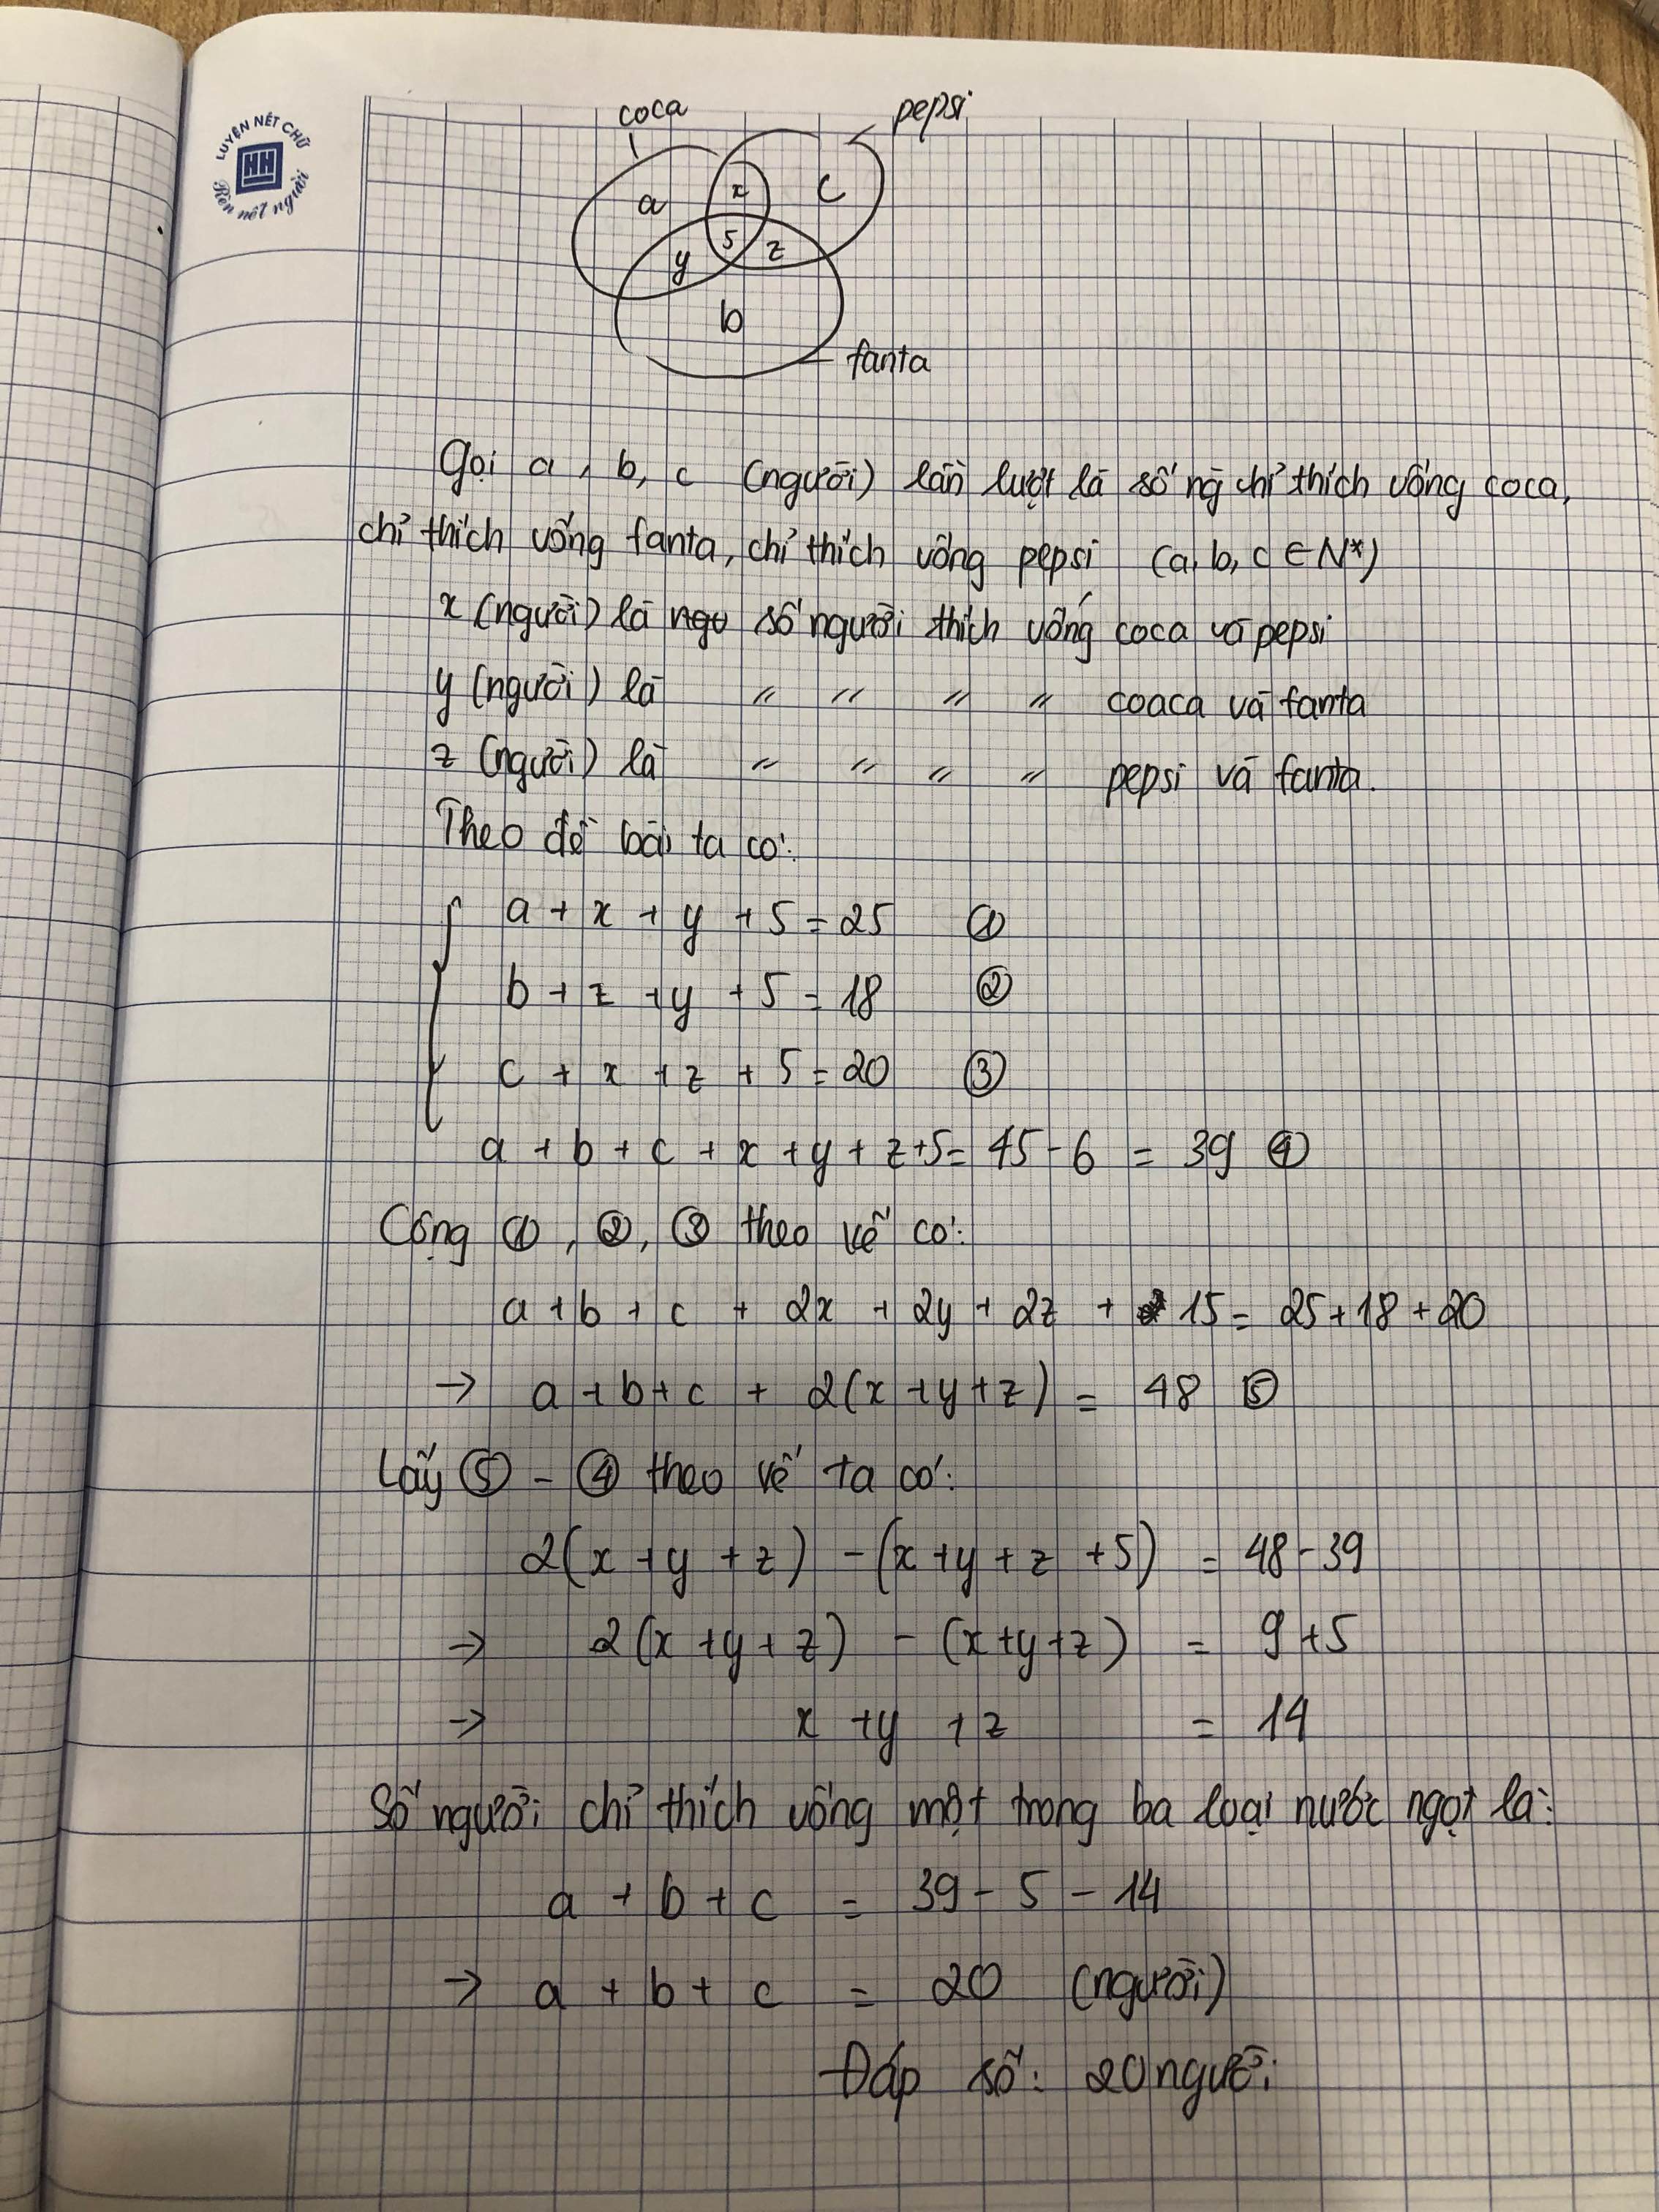 LUYỆN NẾT CHỮ
HH
Rèn nết người
coca
pepsi
a
x
c
5
y
z
b
fanta
Gọi a, b, c (người) lần lượt là số ng chỉ thích uống coca,
chỉ thích uống fanta, chỉ thích uống pepsi (a, b, c ∈ N*)
x (người) là ngư số người thích uống coca và pepsi
y (người) là " " " " coaca và fanta
z (người) là " " " " pepsi và fanta.
Theo đề bài ta có:
a + x + y + 5 = 25 ①
b + z + y + 5 = 18 ②
c + x + z + 5 = 20 ③
a + b + c + x + y + z + 5 = 45 - 6 = 39 ④
Cộng ①, ②, ③ theo vế có:
a + b + c + 2x + 2y + 2z + 15 = 25 + 18 + 20
→ a + b + c + 2(x + y + z) = 48 ⑤
Lấy ⑤ - ④ theo vế ta có:
2(x + y + z) - (x + y + z + 5) = 48 - 39
→ 2(x + y + z) - (x + y + z) = 9 + 5
→ x + y + z = 14
Số người chỉ thích uống một trong ba loại nước ngọt là:
a + b + c = 39 - 5 - 14
→ a + b + c = 20 (người)
Đáp số: 20 người